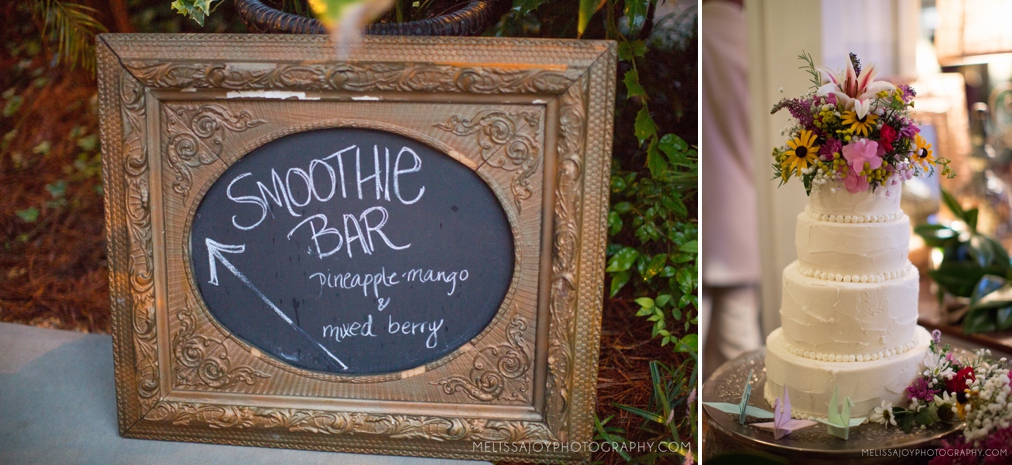 SMOOTHIE
BAR
pineapple-mango
&
mixed berry
MELISSAJOYPHOTOGRAPHY.COM
MELISSAJOYPHOTOGRAPHY.COM